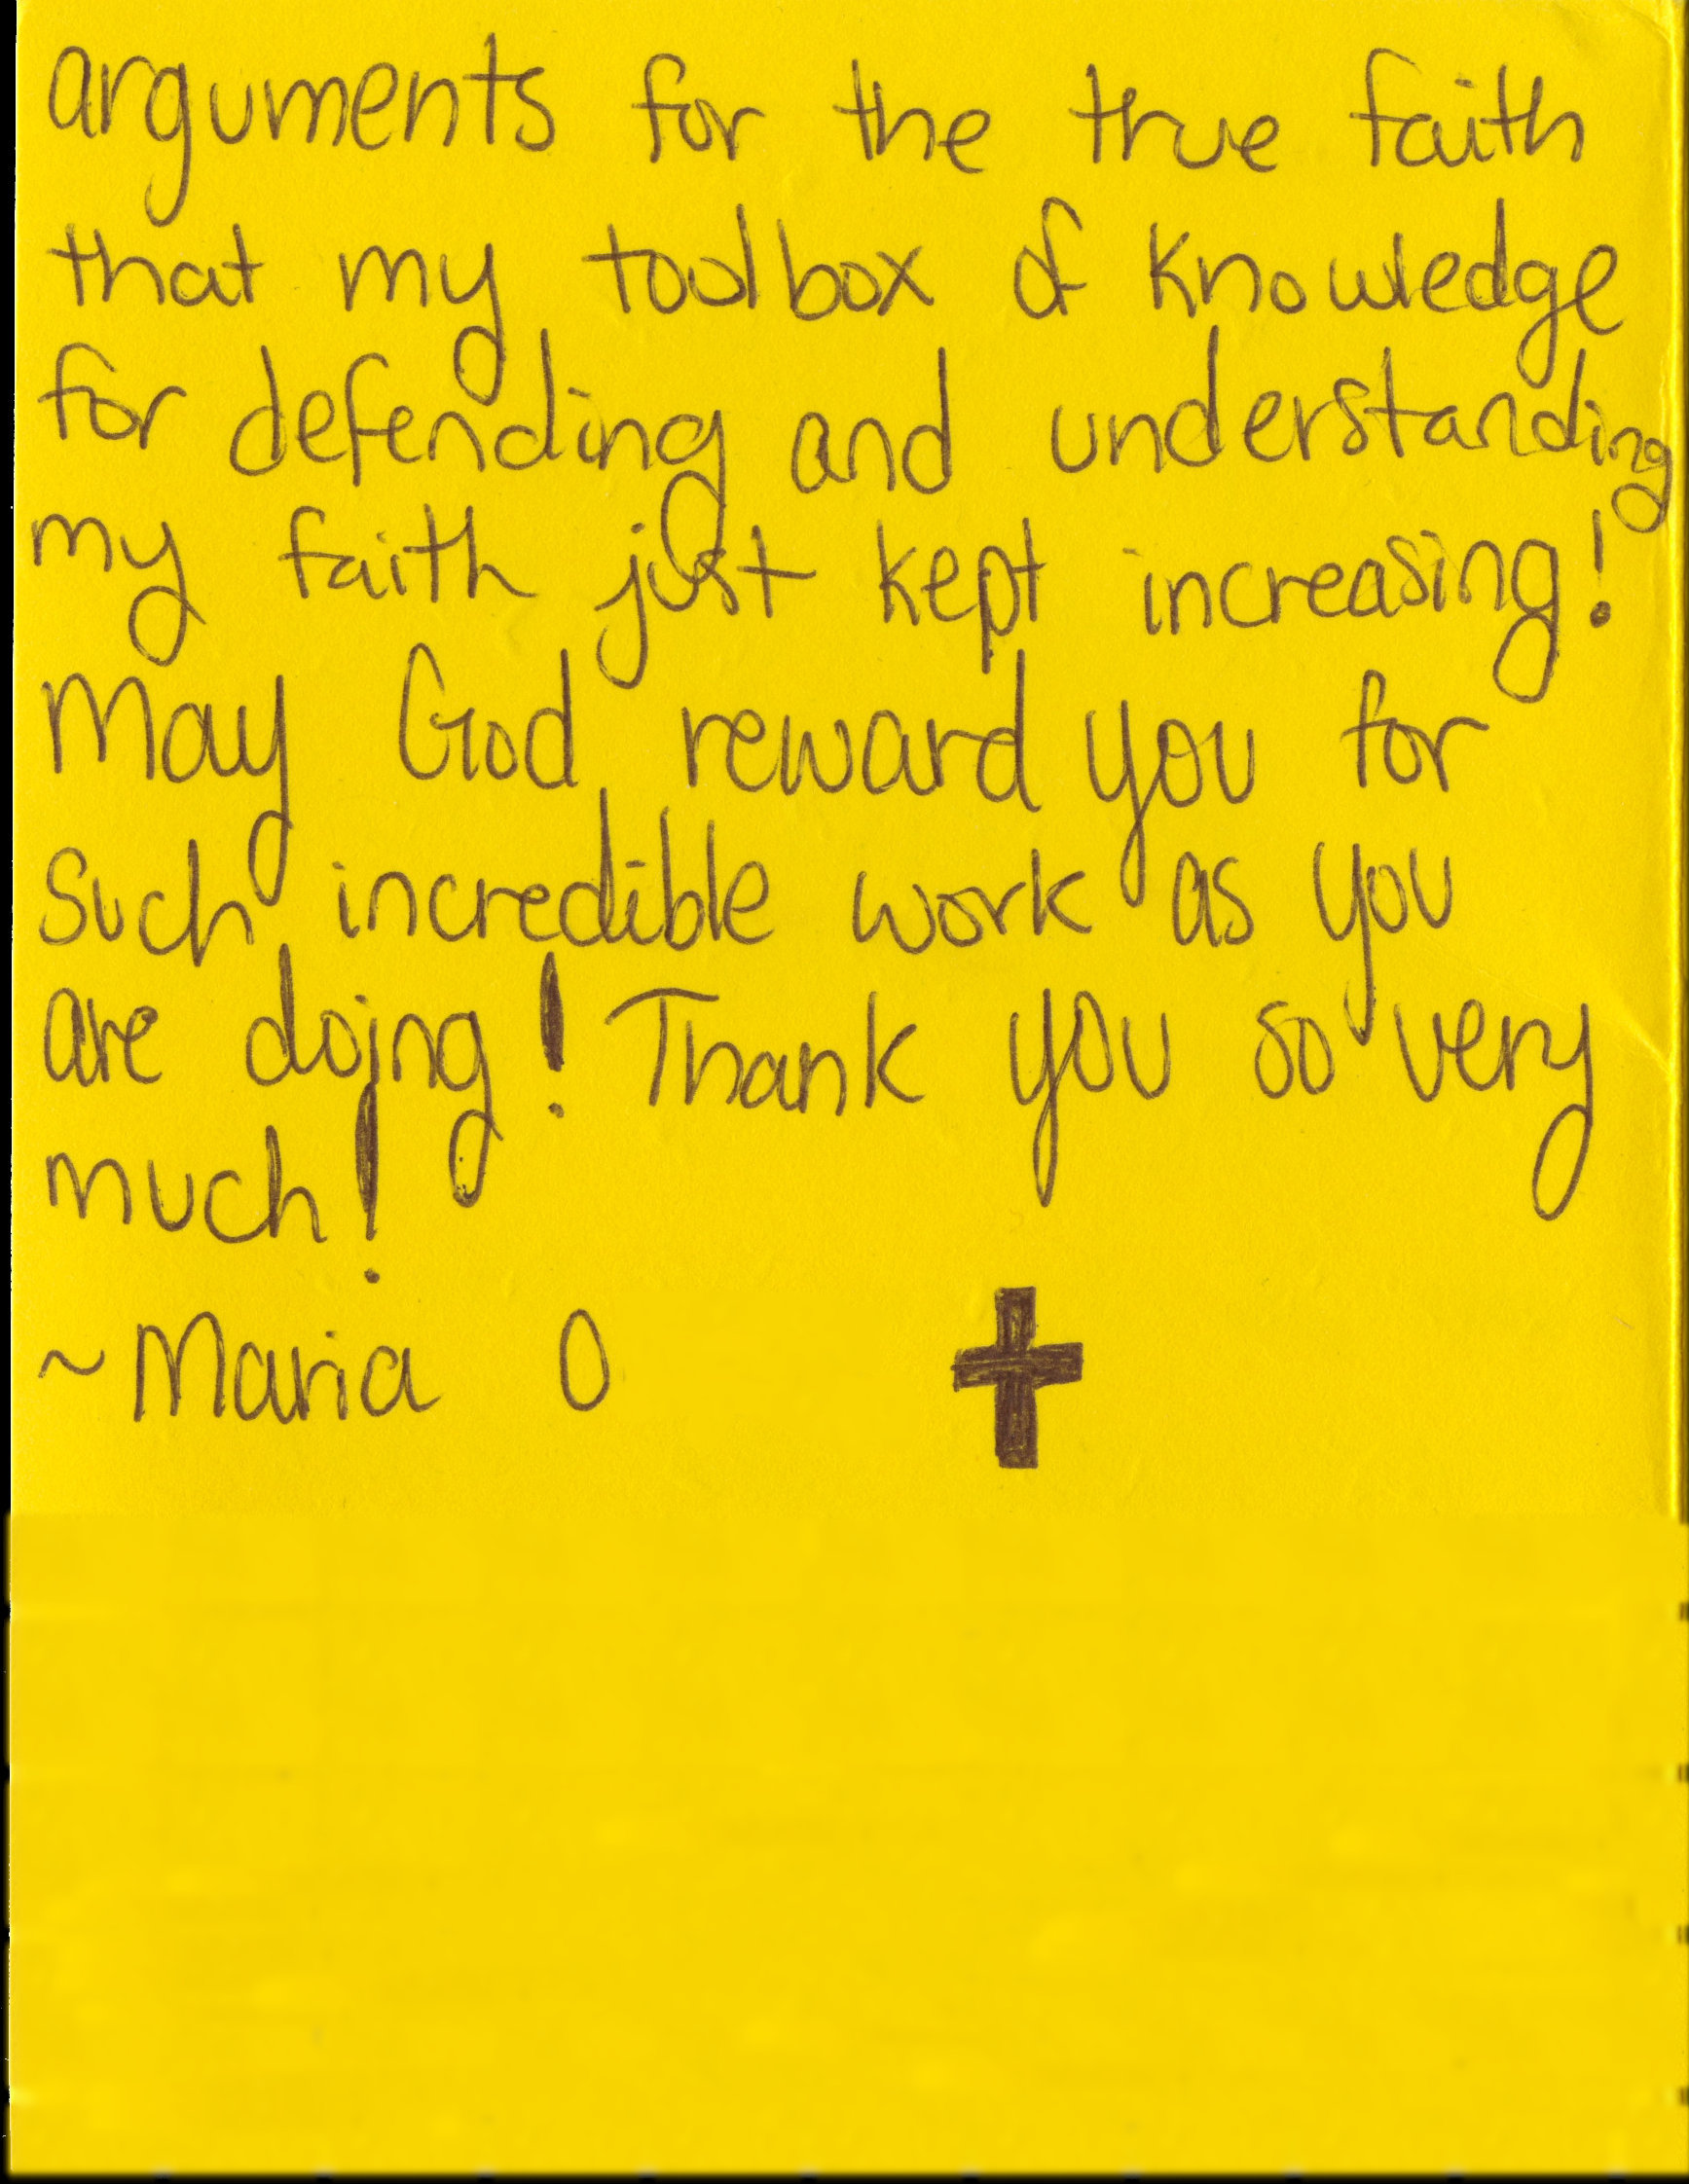 arguments for the true faith
that my toolbox of knowledge
for defending and understanding
my faith just kept increasing!
May God reward you for
Such incredible work as you
are doing! Thank you so very
much!
~Maria O